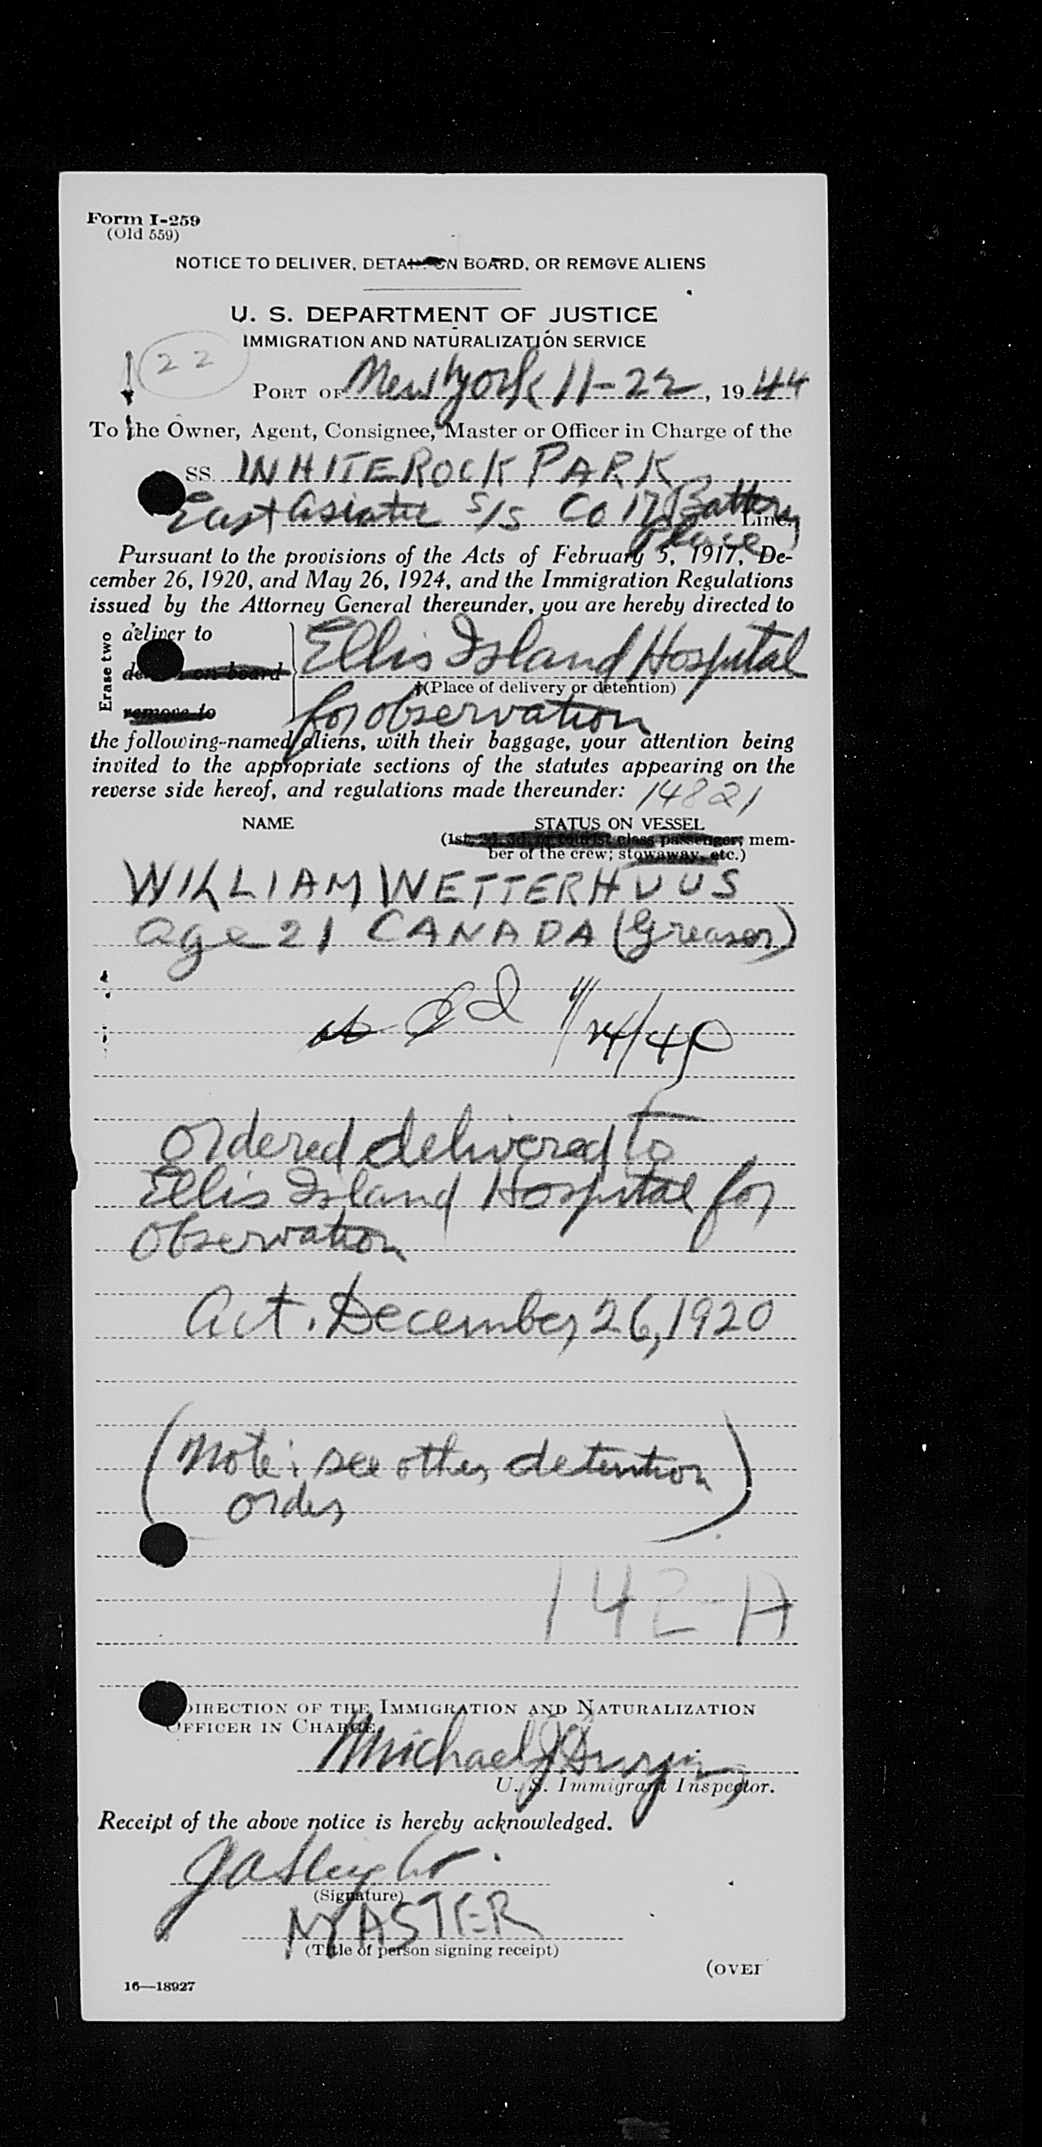 Form I-259
(Old 559)
NOTICE TO DELIVER, DETAIN ON BOARD, OR REMOVE ALIENS
U. S. DEPARTMENT OF JUSTICE
IMMIGRATION AND NATURALIZATION SERVICE
22
PORT OF New York 11-22, 1944
To the Owner, Agent, Consignee, Master or Officer in Charge of the
SS. WHITEROCK PARK
East Asiatic S/S Co 17 Battery Place Line,
Pursuant to the provisions of the Acts of February 5, 1917, De-
cember 26, 1920, and May 26, 1924, and the Immigration Regulations
issued by the Attorney General thereunder, you are hereby directed to
Erase two
deliver to
detain on board
remove to
Ellis Island Hospital
(Place of delivery or detention)
for observation
the following-named aliens, with their baggage, your attention being
invited to the appropriate sections of the statutes appearing on the
reverse side hereof, and regulations made thereunder: 14821
NAME STATUS ON VESSEL
(1st, 2d, 3d, or tourist class passenger; mem-
ber of the crew; stowaway, etc.)
WILLIAM WETTERHUUS
age 21 CANADA (Greaser)
ordered delivered to
Ellis Island Hospital for
observation
Act. December 26, 1920
(Note: see other detention
order)
142-A
DIRECTION OF THE IMMIGRATION AND NATURALIZATION
OFFICER IN CHARGE
Michael J
U. S. Immigrant Inspector.
Receipt of the above notice is hereby acknowledged.
(Signature)
MASTER
(Title of person signing receipt)
(OVER
16—18927